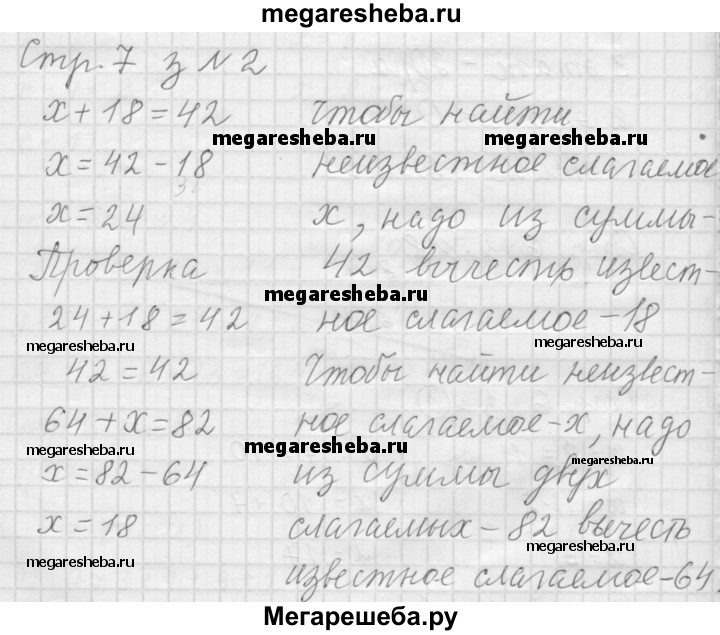 megaresheba.ru
Стр. 7 з № 2
x + 18 = 42 Чтобы найти
megaresheba.ru megaresheba.ru
x = 42 - 18 неизвестное слагаемое
x = 24 x, надо из суммы-
Проверка 42 вычесть извест-
megaresheba.ru
24 + 18 = 42 ное слагаемое - 18
megaresheba.ru megaresheba.ru
42 = 42 Чтобы найти неизвест-
64 + x = 82 ное слагаемое - x, надо
megaresheba.ru megaresheba.ru megaresheba.ru
x = 82 - 64 из суммы двух
x = 18 слагаемых - 82 вычесть
megaresheba.ru megaresheba.ru
известное слагаемое - 64.
Мегарешеба.ру